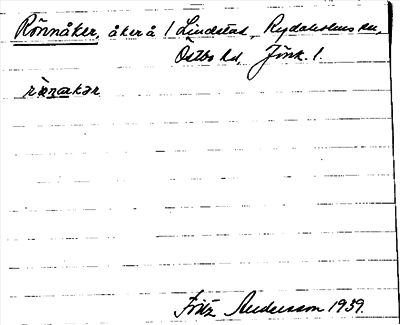 Rönnåker, åker å 1 Lindstad, Rydaholms sn,
Östbo hd, Jönk. l.
rönakər
Fritz Andersson 1939.